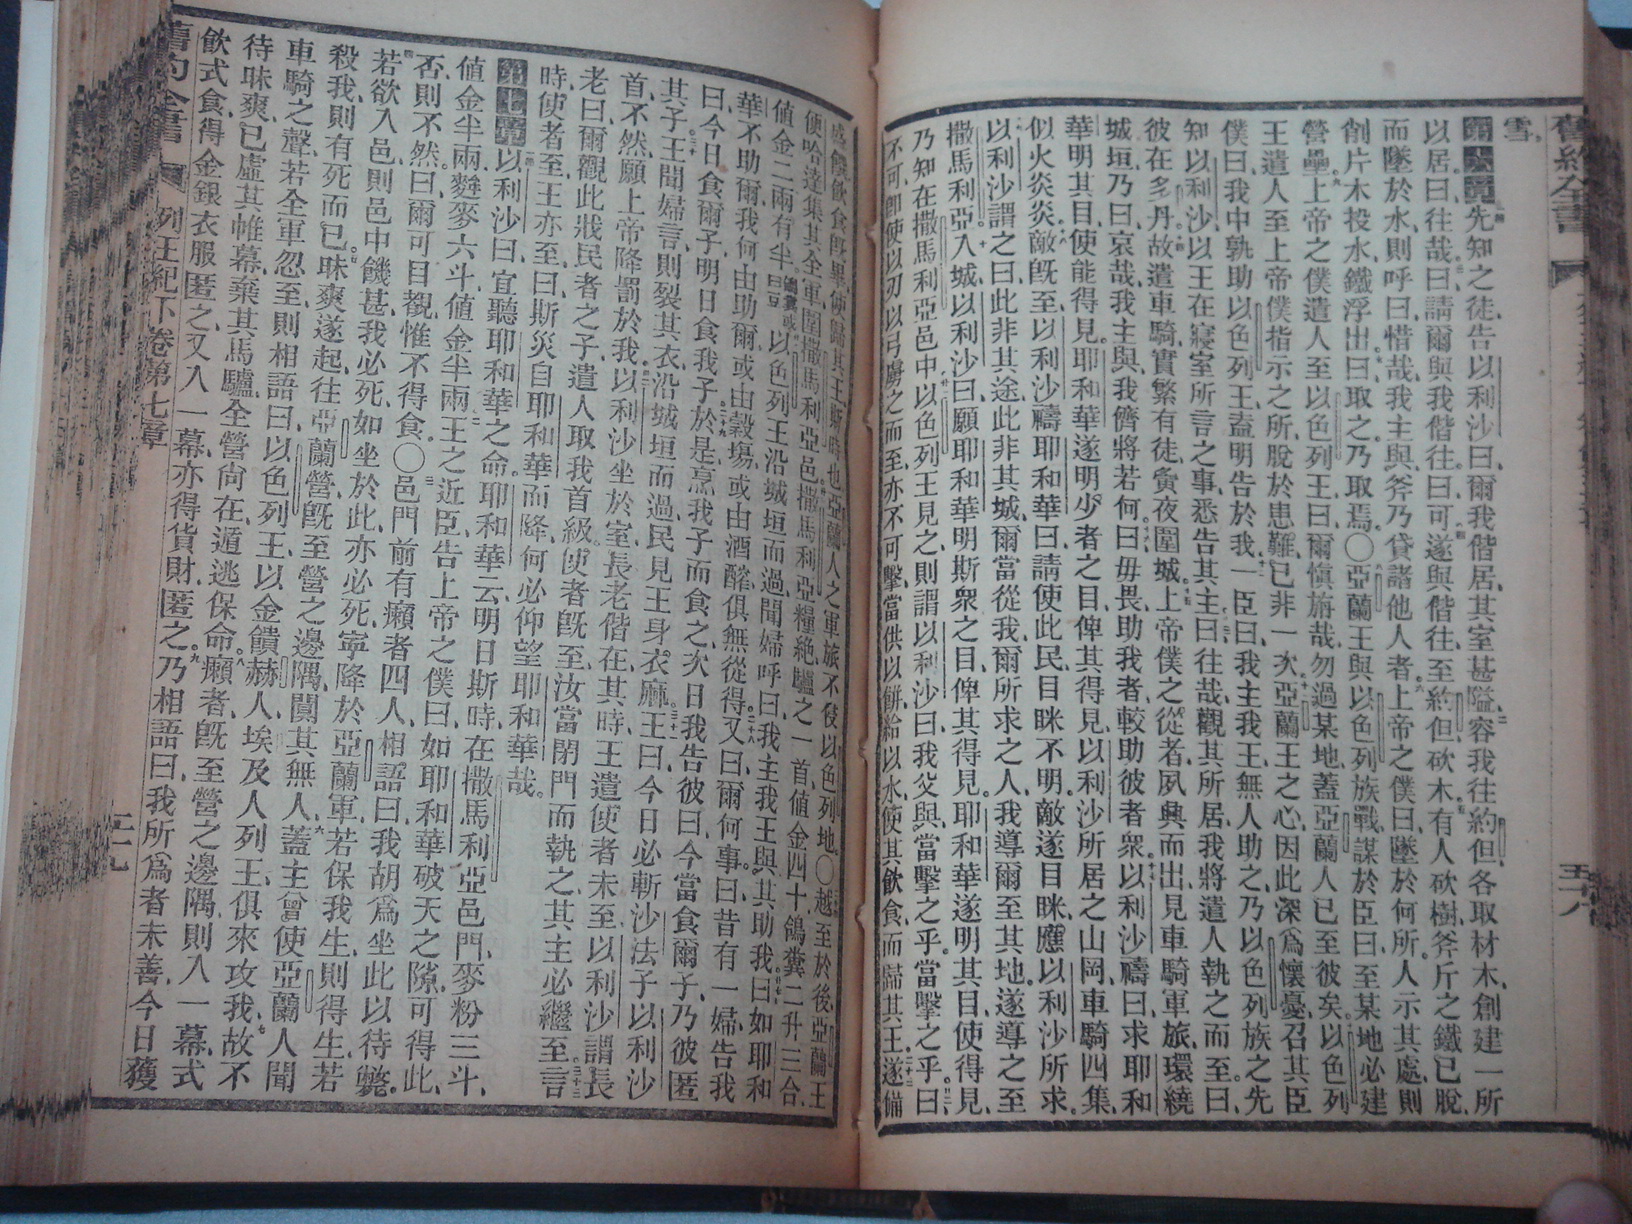 舊約全書
雪。
第六章先知之徒告以利沙曰、爾我偕居、其室甚隘、容我往約但、各取材木、創建一所
以居、曰、往哉、曰、請爾與我偕往、曰、可、遂與偕往、至約但砍木、有人砍樹、斧斤之鐵已脫、
而墜於水、則呼曰、惜哉、我主與、斧乃貸諸他人者、上帝之僕曰、墜於何所、人示其處、則
削片木投水、鐵浮出、曰、取之、乃取焉。〇亞蘭王與以色列族戰、謀於臣曰、至某地必建
營壘。上帝之僕遣人至以色列王曰、爾愼旃哉、勿過某地、蓋亞蘭人已至彼矣。以色列
王遣人至上帝僕指示之所、脫於患難、已非一次。亞蘭王之心、因此深爲懷憂、召其臣
僕曰、我中孰助以色列王、盍明告於我、一臣曰、我主我王、無人助之、乃以色列族之先
知以利沙、以王在寢室所言之事、悉告其主、曰、往哉、觀其所居、我將遣人執之而至、曰、
彼在多丹、故遣車騎、實繁有徒、夤夜圍城。上帝僕之從者、夙興而出、見車騎軍旅、環繞
城垣、乃曰、哀哉、我主與、我儕將若何、曰、毋畏、助我者、較助彼者衆、以利沙禱曰、求耶和
華明其目、使能得見、耶和華遂明少者之目、俾其得見、以利沙所居之山岡、車騎四集、
似火炎炎、敵旣至、以利沙禱耶和華曰、請使此民目眯不明、敵遂目眯、應以利沙所求。
以利沙謂之曰、此非其途、此非其城、爾當從我、爾所求之人、我導爾至其地、遂導之至
撒馬利亞、入城、以利沙曰、願耶和華明斯衆之目、俾其得見、耶和華遂明其目、使得見、
乃知在撒馬利亞邑中、以色列王見之、則謂以利沙曰、我父與、當擊之乎、當擊之乎、曰、
不可、卽使以刃以弓、虜之而至、亦不可擊、當供以餅、給以水、使其飮食、而歸其王、遂備
五十八
盛饌、飮食旣畢、使歸其王、斯時也、亞蘭人之軍旅、不侵以色列地。〇越至於後、亞蘭王
便哈達集其全軍、圍撒馬利亞邑、撒馬利亞糧絕、驢之一首、値金四十、鴿糞二升三合、
値金二兩有半、以色列王沿城垣而過、聞婦呼曰、我主我王與、其助我、曰、如耶和
華不助爾、我何由助爾、或由穀場、或由酒醡、俱無從得、又曰、爾何事、曰、昔有一婦告我
曰、今日食爾子、明日食我子、於是烹我子而食之、次日我告彼曰、今當食爾子、乃彼匿
其子、王聞婦言、則裂其衣、沿城垣而過、民見王身衣麻、王曰、今日必斬沙法子以利沙
首、不然、願上帝降罰於我、以利沙坐於室、長老偕在、其時、王遣使者未至、以利沙謂長
老曰、爾觀此戕民者之子、遣人取我首級、使者旣至、汝當閉門而執之、其主必繼至、言
時、使者至、王亦至、曰、斯災自耶和華而降、何必仰望耶和華哉。
第七章以利沙曰、宜聽耶和華之命、耶和華云、明日斯時、在撒馬利亞邑門、麥粉三斗、
値金半兩、麰麥六斗、値金半兩、王之近臣、告上帝之僕曰、如耶和華破天之隙、可得此、
否則不然、曰、爾可目覩、惟不得食。〇邑門前有癩者四人、相語曰、我胡爲坐此以待斃。
若欲入邑、則邑中饑甚、我必死、如坐於此亦必死、寧降於亞蘭軍、若保我生、則得生、若
殺我、則有死而已、昧爽遂起、往亞蘭營、旣至營之邊隅、闃其無人、蓋主曾使亞蘭人聞
車騎之聲、若全軍忽至、則相語曰、以色列王以金饋赫人、埃及人列王、俱來攻我、故不
待昧爽、已虛其帷幕、棄其馬驢、全營尙在、遁逃保命、癩者旣至營之邊隅、則入一幕、式
飮式食、得金銀衣服、匿之、又入一幕、亦得貨財、匿之、乃相語曰、我所爲者未善、今日獲
舊約全書 列王紀下卷 第七章 五十九